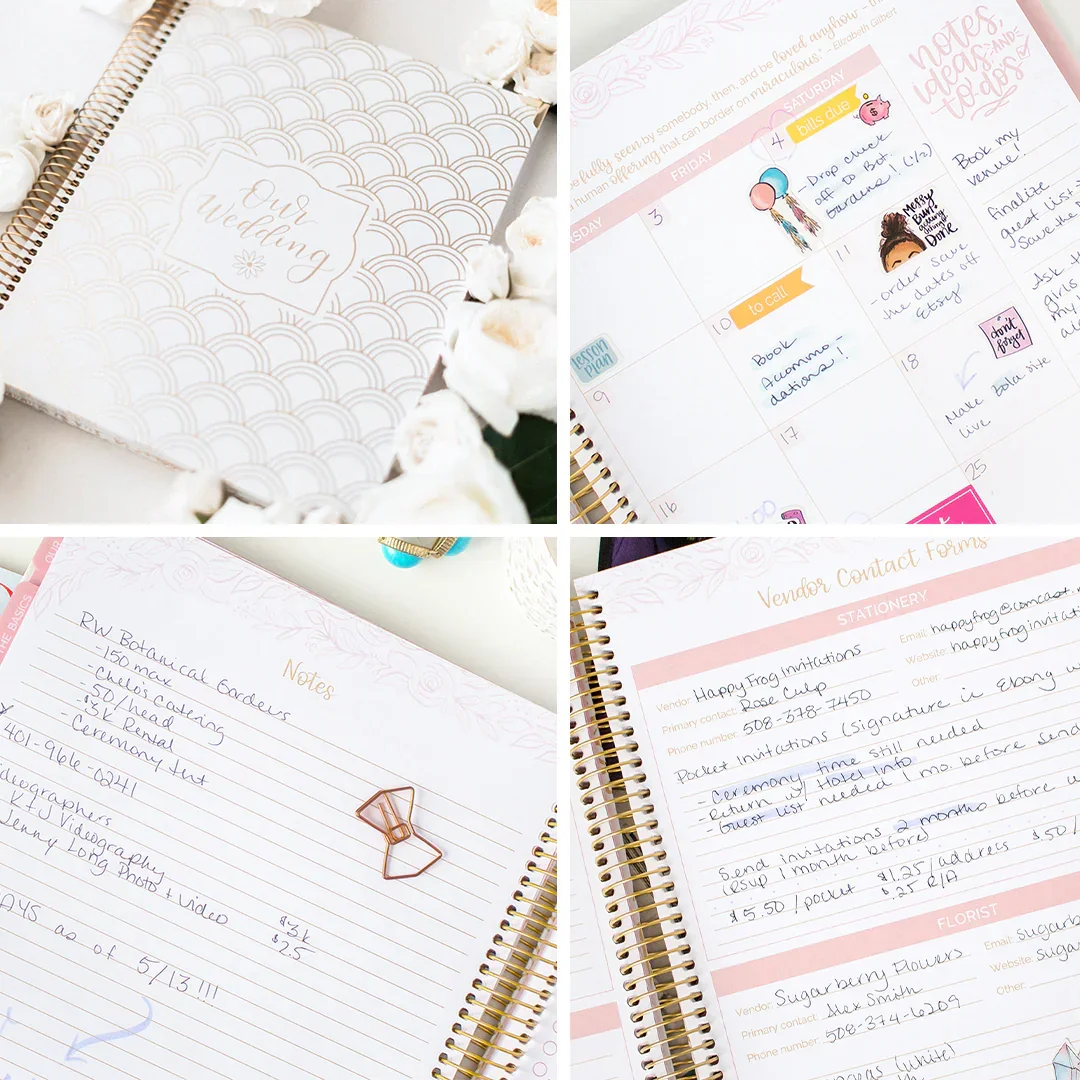 Our
Wedding
be fully seen by somebody, then, and be loved anyhow - th
human offering that can border on miraculous." - Elizabeth Gilbert
notes,
ideas, AND
to do's
FRIDAY
SATURDAY
3
4
bills due
-Drop check
off to Bot.
Gardens! (1/2)
10
to call
Book
Accommo-
dations!!
11
Messy
Bun &
Done
-order save
the dates off
Etsy
lesson
plan
9
16
17
18
don't
forget
Make Zola site
live
25
Book my
venue!
finalize
guest list
Save the
Ask t
girls
my
Notes
THE BASICS
OUR
RW Botanical Gardens
-150 max
-Chelo's Catering
-50/head
-$3k Rental
-Ceremony tent
401-966-0241
ideographers
KTJ Videography
Jenny Long Photo + Video
$3k
$2.5
AYS
as of 5/13!!!
Vendor Contact Forms
STATIONERY
Vendor: Happy Frog Invitations
Primary contact: Rose Culp
Phone number: 508-378-7450
Email: happyfrog@comcast.
Website: happyfroginvitati
Other:
Pocket Invitations (signature in Ebony w
-Ceremony time still needed
-Return w/ Hotel info
-Guest list needed 1 mo. before send
Send invitations 2 months before w
(RSVP 1 month before)
$5.50/pocket $1.25/address $50/
$.25 R/A
FLORIST
Vendor: Sugarberry Flowers
Primary contact: Alex Smith
Phone number: 508-374-6209
Email: sugarb
Website: suga
Other:
(white)